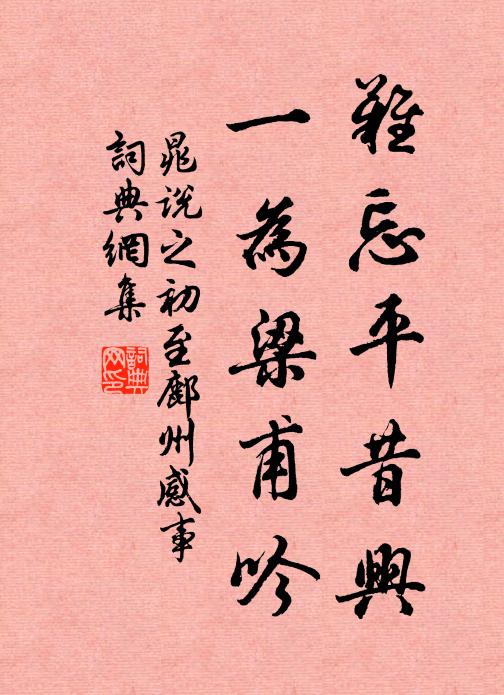 難忘平昔興
一為梁甫吟
晁說之初至鄜州感事
詞典網集
詞典網印